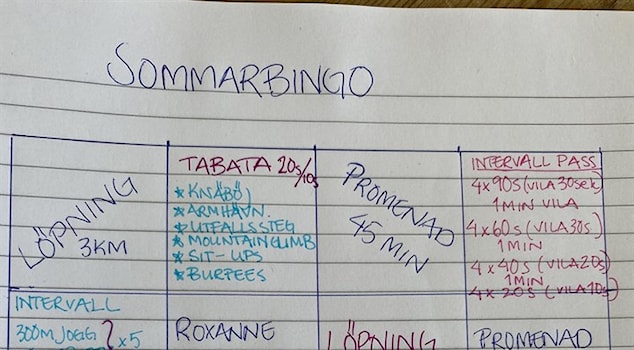 SOMMARBINGO
LÖPNING
3KM
TABATA 20s/10s
* KNÄBÖJ
* ARMHÄVN.
* UTFALLSSTEG
* MOUNTAINCLIMB
* SIT-UPS
* BURPEES
PROMENAD
45 MIN
INTERVALL PASS
4x90s (VILA 30sek)
1 MIN VILA
4x60s (VILA 30s)
1 MIN
4x40s (VILA 20s)
1 MIN
4x20s (VILA 10s)
INTERVALL
300M JOGG } x5
ROXANNE
LÖPNING
PROMENAD